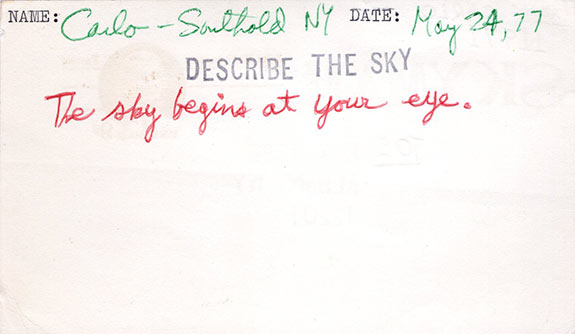 NAME: Carlo - Southold NY DATE: May 24, 77
DESCRIBE THE SKY
The sky begins at your eye.